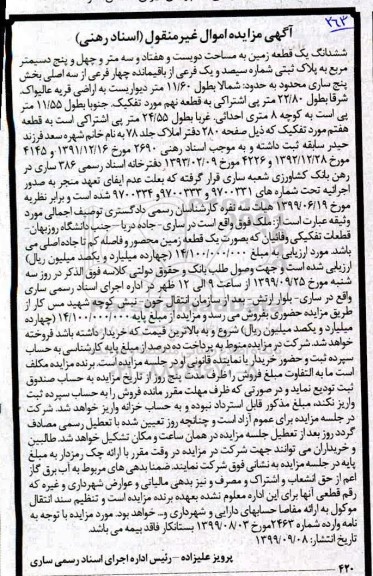 ۲۶۳
آگهی مزایده اموال غیرمنقول (اسناد رهنی)
ششدانگ یک قطعه زمین به مساحت دویست و هفتاد و سه متر و چهل و پنج دسیمتر
مربع به پلاک ثبتی شماره سیصد و یک فرعی از باقیمانده چهار فرعی از سه اصلی بخش
پنج ساری محدود به حدود: شمالا بطول ۱۱/۶۰ متر دیواریست به اراضی قریه عالیواک.
شرقا بطول ۲۲/۸۰ متر پی اشتراکی به قطعه نهم مورد تفکیک. جنوبا بطول ۱۱/۵۵ متر
پی است به کوچه ۸ متری احداثی. غربا بطول ۲۴/۵۵ متر پی اشتراکی است به قطعه
هفتم مورد تفکیک که ذیل صفحه ۲۸۰ دفتر املاک جلد ۷۸ به نام خانم شهره سعد فرزند
حیدر سابقه ثبت داشته و به موجب اسناد رهنی ۲۶۹۰ مورخ ۱۳۹۱/۱۲/۱۶ و ۴۱۴۵
مورخ ۱۳۹۲/۱۲/۲۸ و ۴۲۲۶ مورخ ۱۳۹۳/۰۲/۰۹ دفترخانه اسناد رسمی ۳۸۶ ساری در
رهن بانک کشاورزی شعبه ساری قرار گرفته که بعلت عدم ایفای تعهد منجر به صدور
اجرائیه تحت شماره های ۹۷۰۰۳۳۱ و ۹۷۰۰۳۳۳ و ۹۷۰۰۳۳۴ شده است و برابر نظریه
مورخ ۱۳۹۹/۰۶/۱۹ هیات سه نفره کارشناسان رسمی دادگستری توصیف اجمالی مورد
وثیقه عبارت است از: ملک فوق واقع است در ساری- جاده دریا- جنب دانشگاه روزبهان-
قطعات تفکیکی وفائیان که بصورت یک قطعه زمین محصور و فاصله کم تا جاده اصلی می
باشد. مورد ارزیابی به مبلغ ۱۴/۱۰۰/۰۰۰/۰۰۰ (چهارده میلیارد و یکصد میلیون ریال)
ارزیابی شده است و جهت وصول طلب بانک و حقوق دولتی کلاسه فوق الذکر در روز سه
شنبه مورخ ۱۳۹۹/۰۹/۲۵ از ساعت ۹ الی ۱۲ ظهر در اداره اجرای اسناد رسمی ساری
واقع در ساری- بلوار ارتش- بعد از سازمان انتقال خون- نبش کوچه شهید مس کار از
طریق مزایده حضوری بفروش می رسد و مزایده از مبلغ پایه ۱۴/۱۰۰/۰۰۰/۰۰۰ (چهارده
میلیارد و یکصد میلیون ریال) شروع و به بالاترین قیمت که خریدار داشته باشد فروخته
خواهد شد. شرکت در مزایده منوط به پرداخت ده درصد از مبلغ پایه کارشناسی به حساب
سپرده ثبت و حضور خریدار یا نماینده قانونی او در جلسه مزایده است. برنده مزایده مکلف
است ما به التفاوت مبلغ فروش را ظرف مدت پنج روز از تاریخ مزایده به حساب صندوق
ثبت تودیع نماید و در صورتی که ظرف مهلت مقرر مانده فروش را به حساب سپرده ثبت
واریز نکند، مبلغ مذکور قابل استرداد نبوده و به حساب خزانه واریز خواهد شد. شرکت
در جلسه مزایده برای عموم آزاد است و چنانچه روز تعیین شده با تعطیل رسمی مصادف
گردد روز بعد از تعطیل جلسه مزایده در همان ساعت و مکان تشکیل خواهد شد. طالبین
و خریداران می توانند جهت شرکت در مزایده در وقت مقرر با ارائه چک رمزدار به مبلغ
پایه در جلسه مزایده به نشانی فوق شرکت نمایند. ضمنا بدهی های مربوط به آب برق گاز
اعم از حق انشعاب و اشتراک و مصرف و نیز بدهی مالیاتی و عوارض شهرداری و غیره که
رقم قطعی آنها برای این اداره معلوم نشده بعهده برنده مزایده است و تنظیم سند انتقال
موکول به ارائه مفاصا حسابهای دارایی و شهرداری و.. خواهد بود. مورد مزایده با توجه به
نامه وارده شماره ۲۴۶۳ مورخ ۱۳۹۹/۰۸/۰۳ بستانکار فاقد بیمه می باشد.
تاریخ انتشار: ۱۳۹۹/۰۹/۰۸
پرویز علیزاده - رئیس اداره اجرای اسناد رسمی ساری
۴۲۰